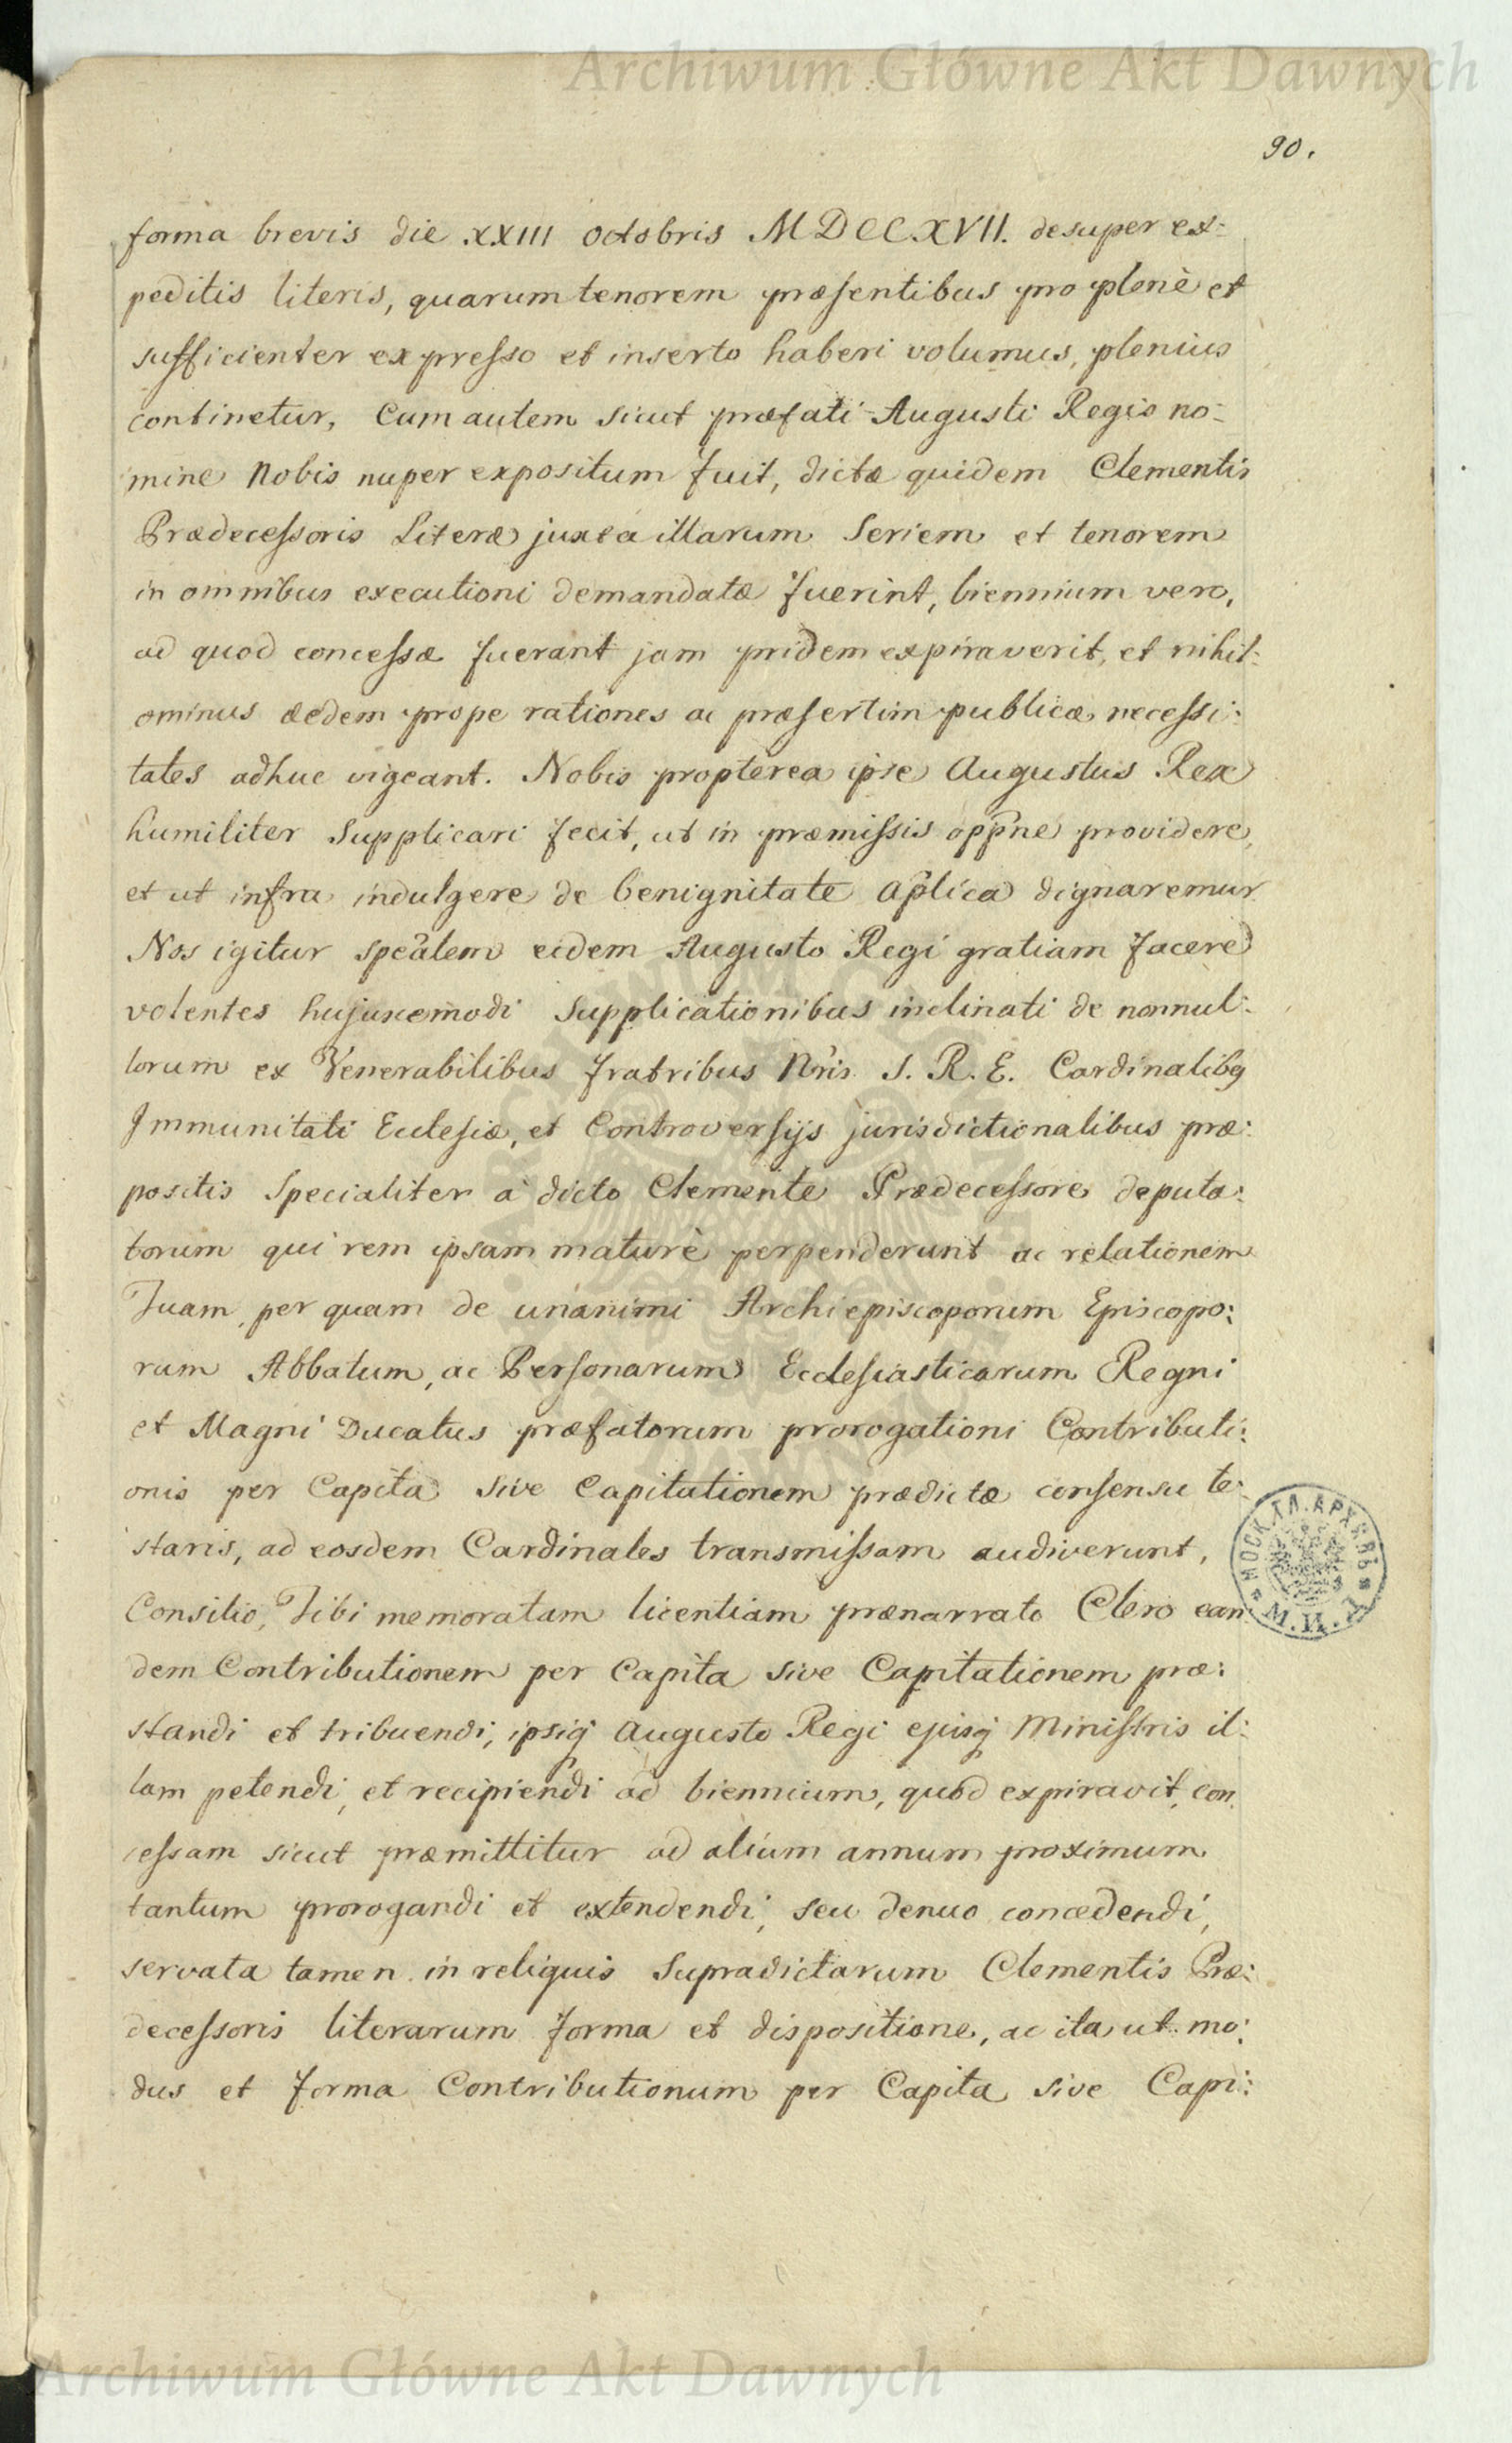 Archiwum Główne Akt Dawnych
90.
forma brevis die XXIII octobris MDCCXVII. desuper ex-
peditis literis, quarum tenorem præsentibus pro plenè et
sufficienter expresso et inserto haberi volumus, plenius
continetur, Cum autem sicut præfati Augusti Regis no-
mine Nobis nuper expositum fuit, dictæ quidem Clementis
Prædecessoris Literæ juxta illarum Seriem et tenorem
in omnibus executioni demandatæ fuerint, biennium vero,
ad quod concessæ fuerant jam pridem expiraverit, et nihil:
ominus ædem prope rationes ac præsertim publicæ necessi:
tates adhuc vigeant. Nobis propterea ipse Augustus Rex
humiliter Supplicari fecit, ut in præmissis oppne providere,
et ut infra indulgere de benignitate aplica dignaremur
Nos igitur spealem eidem Augusto Regi gratiam facere
volentes hujuscemodi Supplicationibus inclinati de nonnul:
lorum ex Venerabilibus fratribus Nris S. R. E. Cardinalibq
Immunitati Ecclesiæ, et Controversijs jurisdictionalibus præ:
positis Specialiter à dicto Clemente Prædecessore deputa:
torum qui rem ipsam maturè perpenderunt ac relationem
Tuam, per quam de unanimi Archiepiscoporum Episcopo:
rum Abbatum, ac Personarum Ecclesiasticarum Regni
et Magni Ducatus præfatorum prorogationi Contributi:
onis per Capita sive Capitationem prædictæ consensu te:
staris, ad eosdem Cardinales transmissam audiverunt,
Consilio, Tibi memoratam licentiam prænarrato Clero ean
dem Contributionem per Capita sive Capitationem præ:
standi et tribuendi, ipsiq Augusto Regi ejusq Ministris il:
lam petendi, et recipiendi ad biennium, quod expiravit, con
cessam sicut præmittitur ad alium annum proximum
tantum prorogandi et extendendi, seu denuo concedendi,
servata tamen in reliquis Supradictarum Clementis Præ:
decessoris literarum forma et dispositione, ac ita ut mo:
dus et forma Contributionum per Capita sive Capi:
МОСК. ГЛ. АРХИВЪ
М. И. Д.
Archiwum Główne Akt Dawnych